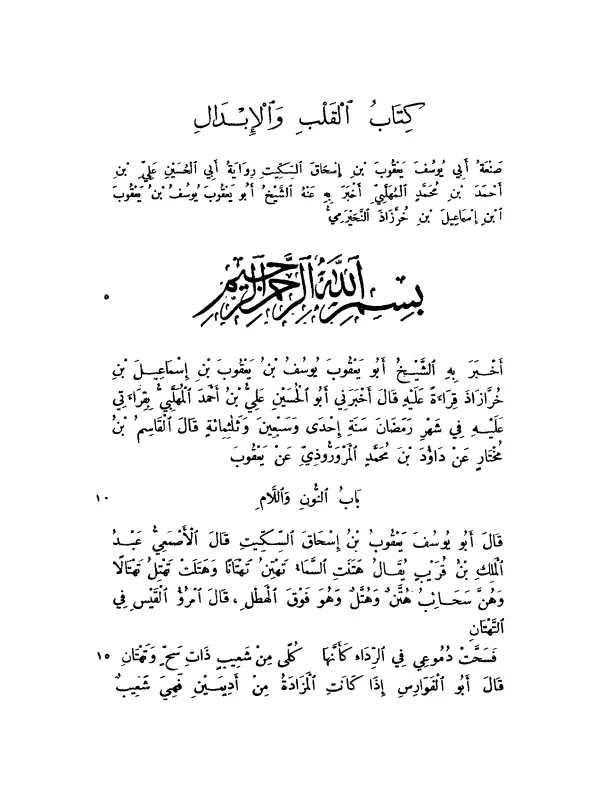 كِتَابُ ٱلْقَلْبِ وَٱلْإِبْدَالِ
صَنْعَةُ أَبِي يُوسُفَ يَعْقُوبَ بْنِ إِسْحَاقَ ٱلسِّكِّيتِ رِوَايَةُ أَبِي ٱلْحُسَيْنِ عَلِيِّ بْنِ
أَحْمَدَ بْنِ مُحَمَّدٍ ٱلْمُهَلَّبِيِّ أَخْبَرَ بِهِ عَنْهُ ٱلشَّيْخُ أَبُو يَعْقُوبَ يُوسُفُ بْنُ يَعْقُوبَ
ٱبْنِ إِسْمَاعِيلَ بْنِ خُرَّزَاذَ ٱلنَّجِيرَمِيُّ
بِسْمِ ٱللَّهِ ٱلرَّحْمَنِ ٱلرَّحِيمِ ٥
أَخْبَرَ بِهِ ٱلشَّيْخُ أَبُو يَعْقُوبَ يُوسُفُ بْنُ يَعْقُوبَ بْنِ إِسْمَاعِيلَ بْنِ
خُرَّازَاذَ قِرَاءَةً عَلَيْهِ قَالَ أَخْبَرَنِي أَبُو ٱلْحُسَيْنِ عَلِيُّ بْنُ أَحْمَدَ ٱلْمُهَلَّبِيُّ بِقِرَاءَتِي
عَلَيْهِ فِي شَهْرِ رَمَضَانَ سَنَةَ إِحْدَى وَسَبْعِينَ وَثَلٰثِمِائَةٍ قَالَ ٱلْقَاسِمُ بْنُ
مُخْتَارٍ عَنْ دَاوُدَ بْنِ مُحَمَّدٍ ٱلْمَرْوَرُّوذِيِّ عَنْ يَعْقُوبَ
بَابُ ٱلنُّونِ وَٱللَّامِ ١٠
قَالَ أَبُو يُوسُفَ يَعْقُوبُ بْنُ إِسْحَاقَ ٱلسِّكِّيتِ قَالَ ٱلْأَصْمَعِيُّ عَبْدُ
ٱلْمَلِكِ بْنُ قُرَيْبٍ يُقَالُ هَتَنَتِ ٱلسَّمَاءُ تَهْتِنُ تَهْتَانًا وَهَتَلَتْ تَهْتِلُ تَهْتَالًا
وَهُنَّ سَحَائِبُ هُتَّنٌ وَهُتَّلٌ وَهُوَ فَوْقَ ٱلْهَطْلِ، قَالَ ٱمْرُؤُ ٱلْقَيْسِ فِي
ٱلتَّهْتَانِ
فَسَحَّتْ دُمُوعِي فِي ٱلرِّدَاءِ كَأَنَّهَا كُلًى مِنْ شَعِيبٍ ذَاتِ سَحٍّ وَتَهْتَانِ ١٥
قَالَ أَبُو ٱلْفَوَارِسِ إِذَا كَانَتِ ٱلْمَزَادَةُ مِنْ أَدِيمَيْنِ فَهِيَ شَعِيبٌ